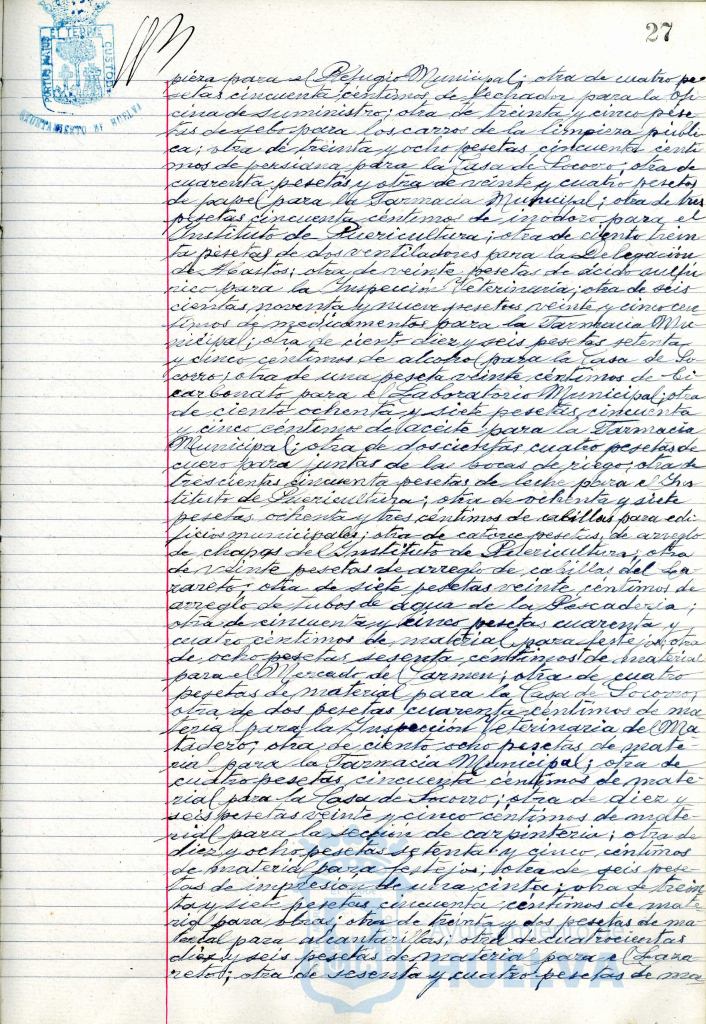 27
PORTUS MARIS ET TERRE CUSTODIA
AYUNTAMIENTO DE HUELVA
pieza para el Refugio Municipal; otra de cuatro pe
setas cincuenta céntimos de flechador para la Ofi
cina de suministro; otra de treinta y cinco pese
tas de sebo para los carros de la limpieza públi
ca; otra de treinta y ocho pesetas cincuenta cénti
mos de persiana para la Casa de Socorro; otra de
cuarenta pesetas y otra de veinte y cuatro pesetas
de papel para la Farmacia Municipal; otra de tres
pesetas cincuenta céntimos de inodoro para el
Instituto de Puericultura; otra de ciento trein
ta pesetas de dos ventiladores para la Delegación
de Abastos; otra de veinte pesetas de ácido sulfú
rico para la Inspección Veterinaria; otra de seis
cientas noventa y nueve pesetas veinte y cinco cén
timos de medicamentos para la Farmacia Mu
nicipal; otra de ciento diez y seis pesetas setenta
y cinco céntimos de alcohol para la Casa de So
corro; otra de una peseta veinte céntimos de bi
carbonato para el Laboratorio Municipal; otra
de ciento ochenta y siete pesetas cincuenta
y cinco céntimos de aceite para la Farmacia
Municipal; otra de doscientas cuatro pesetas de
cuero para juntas de las bocas de riego; otra de
trescientas cincuenta pesetas de leche para el Ins
tituto de Puericultura; otra de ochenta y siete
pesetas ochenta y tres céntimos de cabillas para edi
ficios municipales; otra de catorce pesetas, de arreglo
de chapas del Instituto de Puericultura; otra
de veinte pesetas de arreglo de cabillas del La
zareto; otra de siete pesetas veinte céntimos de
arreglo de tubos de agua de la Pescadería;
otra de cincuenta y cinco pesetas cuarenta y
cuatro céntimos de material para festejos; otra
de ocho pesetas sesenta céntimos de material
para el Mercado de Carmen; otra de cuatro
pesetas de material para la Casa de Socorro;
otra de dos pesetas cuarenta céntimos de ma
terial para la Inspección Veterinaria del Ma
tadero; otra de ciento ocho pesetas de mate-
rial para la Farmacia Municipal; otra de
cuatro pesetas cincuenta céntimos de mate-
rial para la Casa de Socorro; otra de diez y
seis pesetas veinte y cinco céntimos de mate-
rial para la sección de carpintería; otra de
diez y ocho pesetas setenta y cinco céntimos
de material para festejos; otra de seis pese
tas de impresión de una cinta; otra de trein
ta y siete pesetas cincuenta céntimos de mate
rial para obras; otra de treinta y dos pesetas de ma
terial para alcantarillas; otra de cuatrocientas
diez y seis pesetas de material para el Laza
reto; otra de sesenta y cuatro pesetas de ma
Ayuntamiento de
HUELVA